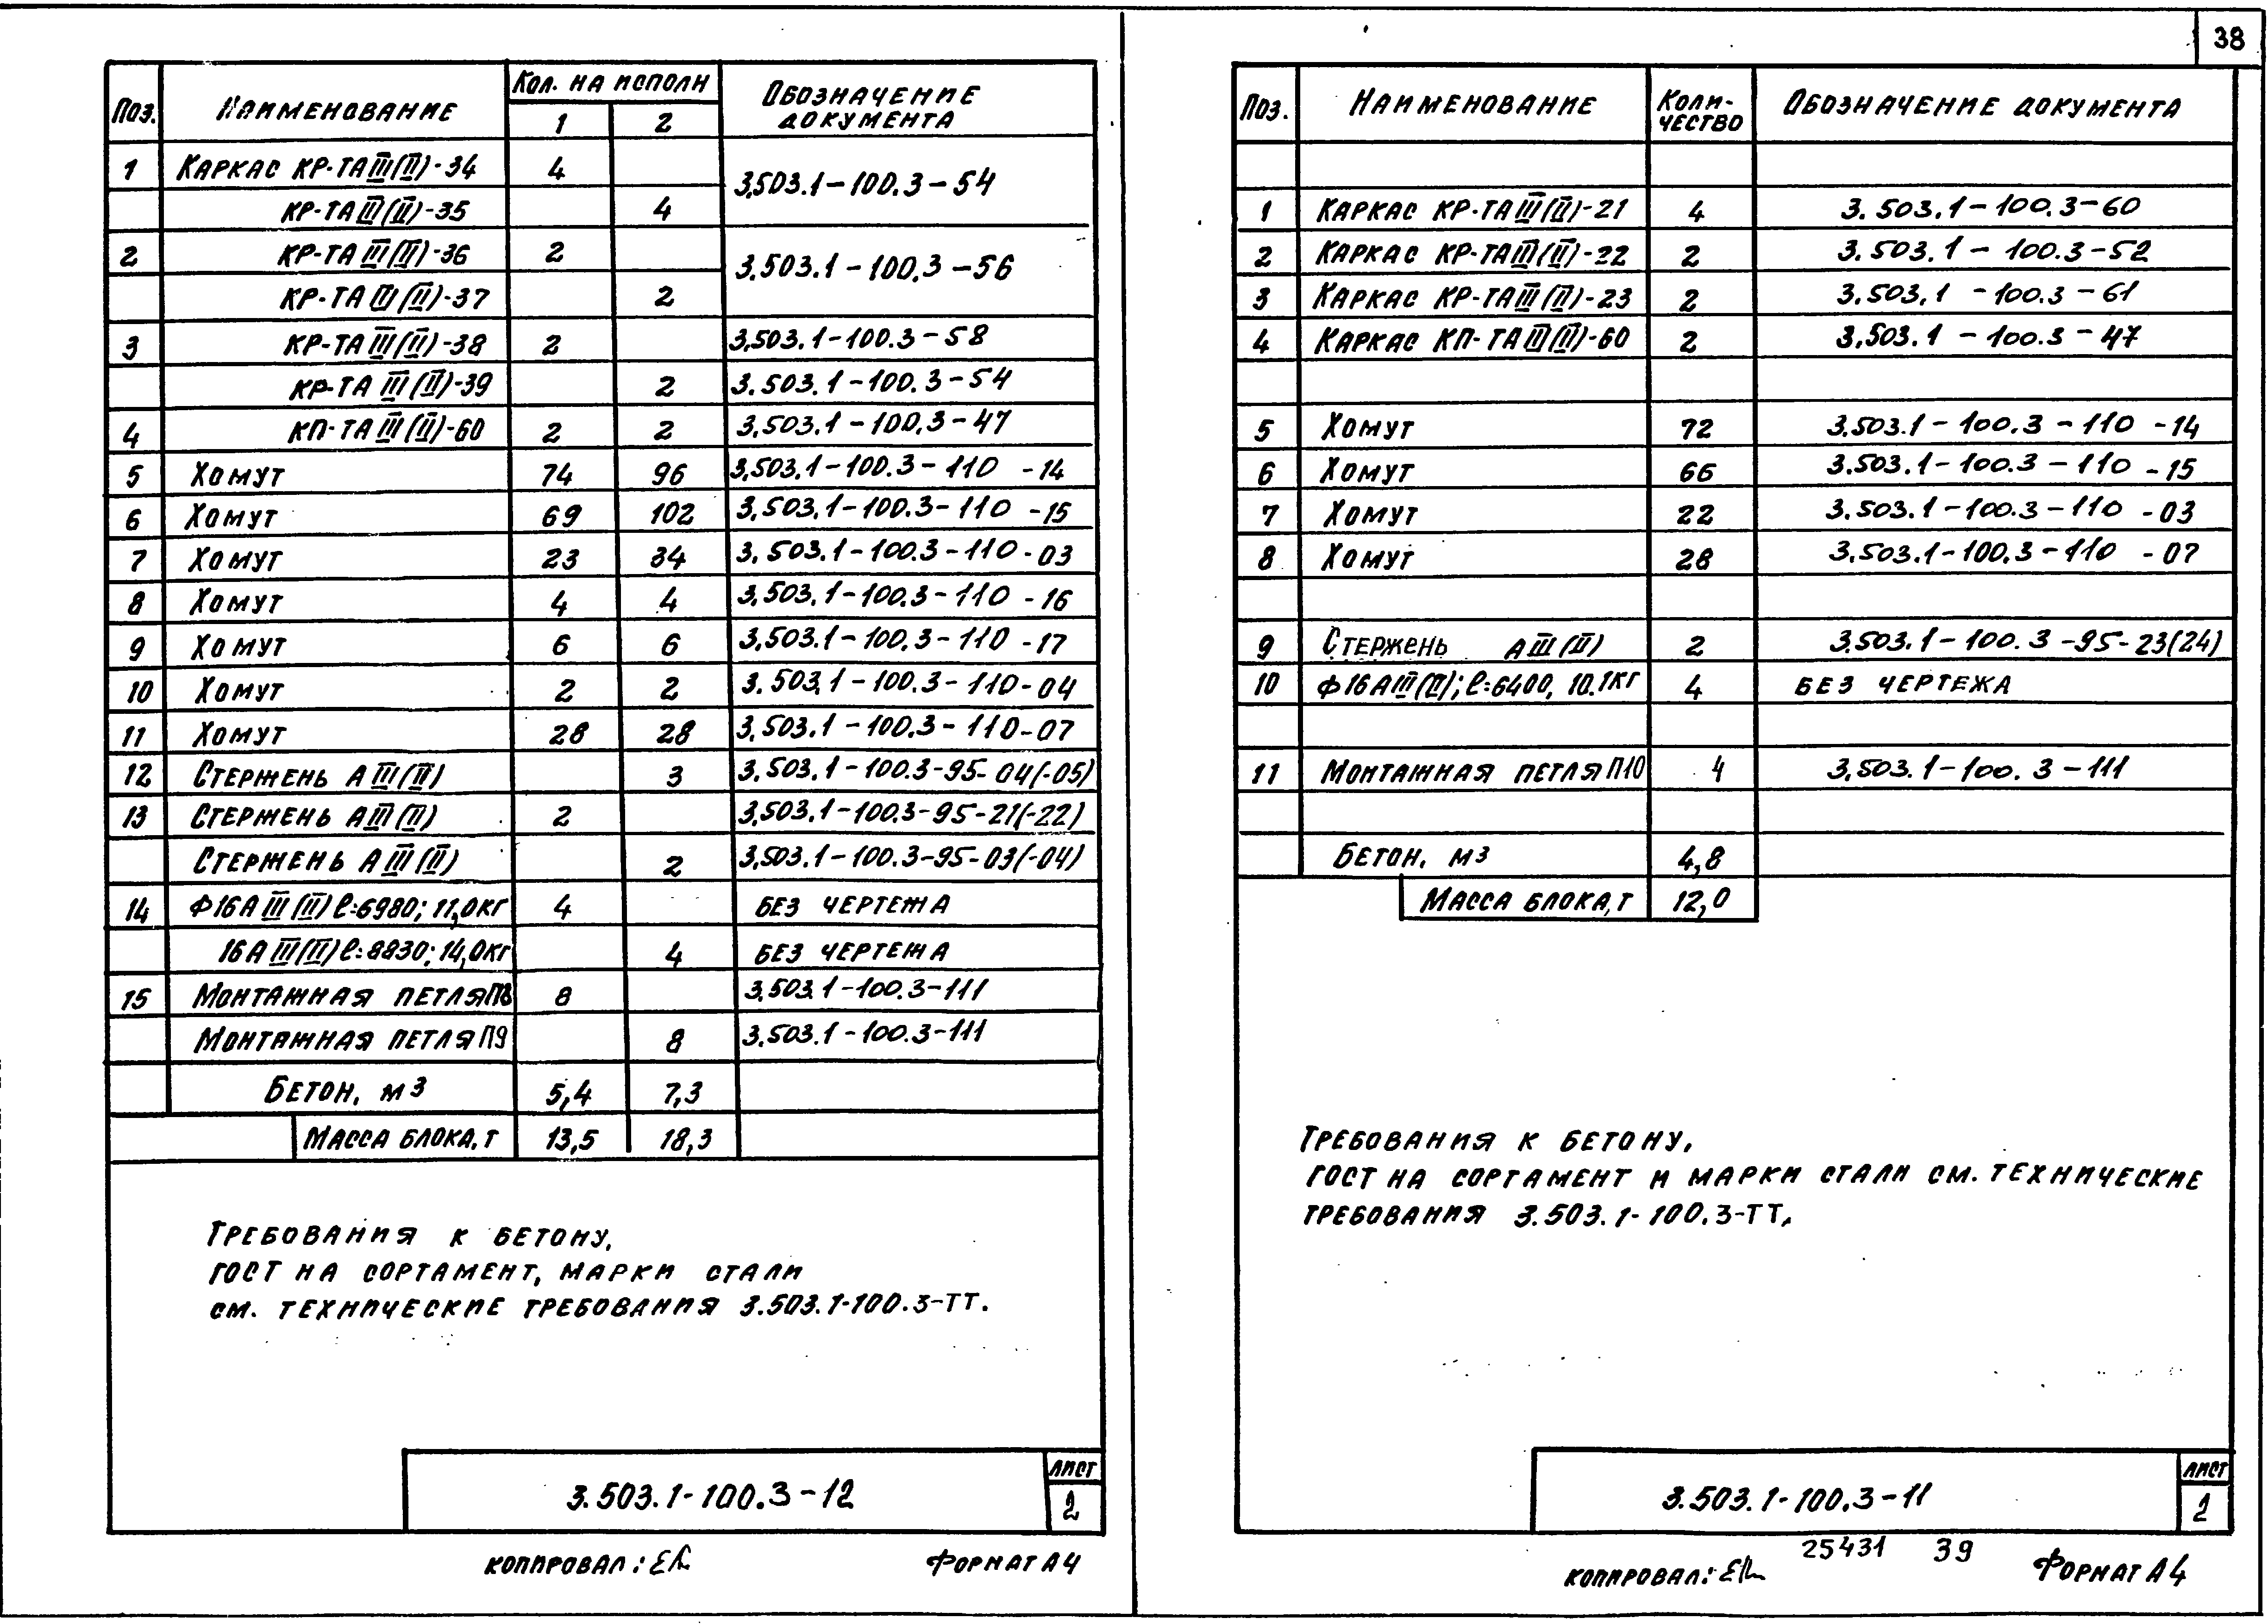 38
Поз. Наименование Кол. на исполн Обозначение документа
1 2
1 Каркас КР-ТАIII(II)-34 4 3.503.1-100.3-54
КР-ТАIII(II)-35 4
2 КР-ТАIII(II)-36 2 3.503.1-100.3-56
КР-ТАIII(II)-37 2
3 КР-ТАIII(II)-38 2 3.503.1-100.3-58
КР-ТАIII(II)-39 2 3.503.1-100.3-54
4 КП-ТАIII(II)-60 2 2 3.503.1-100.3-47
5 Хомут 74 96 3.503.1-100.3-110-14
6 Хомут 69 102 3.503.1-100.3-110-15
7 Хомут 23 34 3.503.1-100.3-110-03
8 Хомут 4 4 3.503.1-100.3-110-16
9 Хомут 6 6 3.503.1-100.3-110-17
10 Хомут 2 2 3.503.1-100.3-110-04
11 Хомут 28 28 3.503.1-100.3-110-07
12 Стержень АIII(II) 3 3.503.1-100.3-95-04(-05)
13 Стержень АIII(II) 2 3.503.1-100.3-95-21(-22)
Стержень АIII(II) 2 3.503.1-100.3-95-03(-04)
14 Ф16АIII(II) ℓ=6980; 11,0кг 4 без чертежа
16АIII(II) ℓ=8830; 14,0кг 4 без чертежа
15 Монтажная петля П8 8 3.503.1-100.3-111
Монтажная петля П9 8 3.503.1-100.3-111
Бетон, м3 5,4 7,3
Масса блока, т 13,5 18,3
Требования к бетону,
ГОСТ на сортамент, марки стали
см. технические требования 3.503.1-100.3-ТТ.
3.503.1-100.3-12
Лист
2
Копировал:
Формат А4
Поз. Наименование Количество Обозначение документа
1 Каркас КР-ТАIII(II)-21 4 3.503.1-100.3-60
2 Каркас КР-ТАIII(II)-22 2 3.503.1-100.3-52
3 Каркас КР-ТАIII(II)-23 2 3.503.1-100.3-61
4 Каркас КП-ТАIII(II)-60 2 3.503.1-100.3-47
5 Хомут 72 3.503.1-100.3-110-14
6 Хомут 66 3.503.1-100.3-110-15
7 Хомут 22 3.503.1-100.3-110-03
8 Хомут 28 3.503.1-100.3-110-07
9 Стержень АIII(II) 2 3.503.1-100.3-95-23(24)
10 Ф16АIII(II); ℓ=6400, 10.1кг 4 без чертежа
11 Монтажная петля П10 4 3.503.1-100.3-111
Бетон, м3 4,8
Масса блока, т 12,0
Требования к бетону,
ГОСТ на сортамент и марки стали см. технические
требования 3.503.1-100.3-ТТ.
3.503.1-100.3-11
Лист
2
25431 39
Копировал:
Формат А4